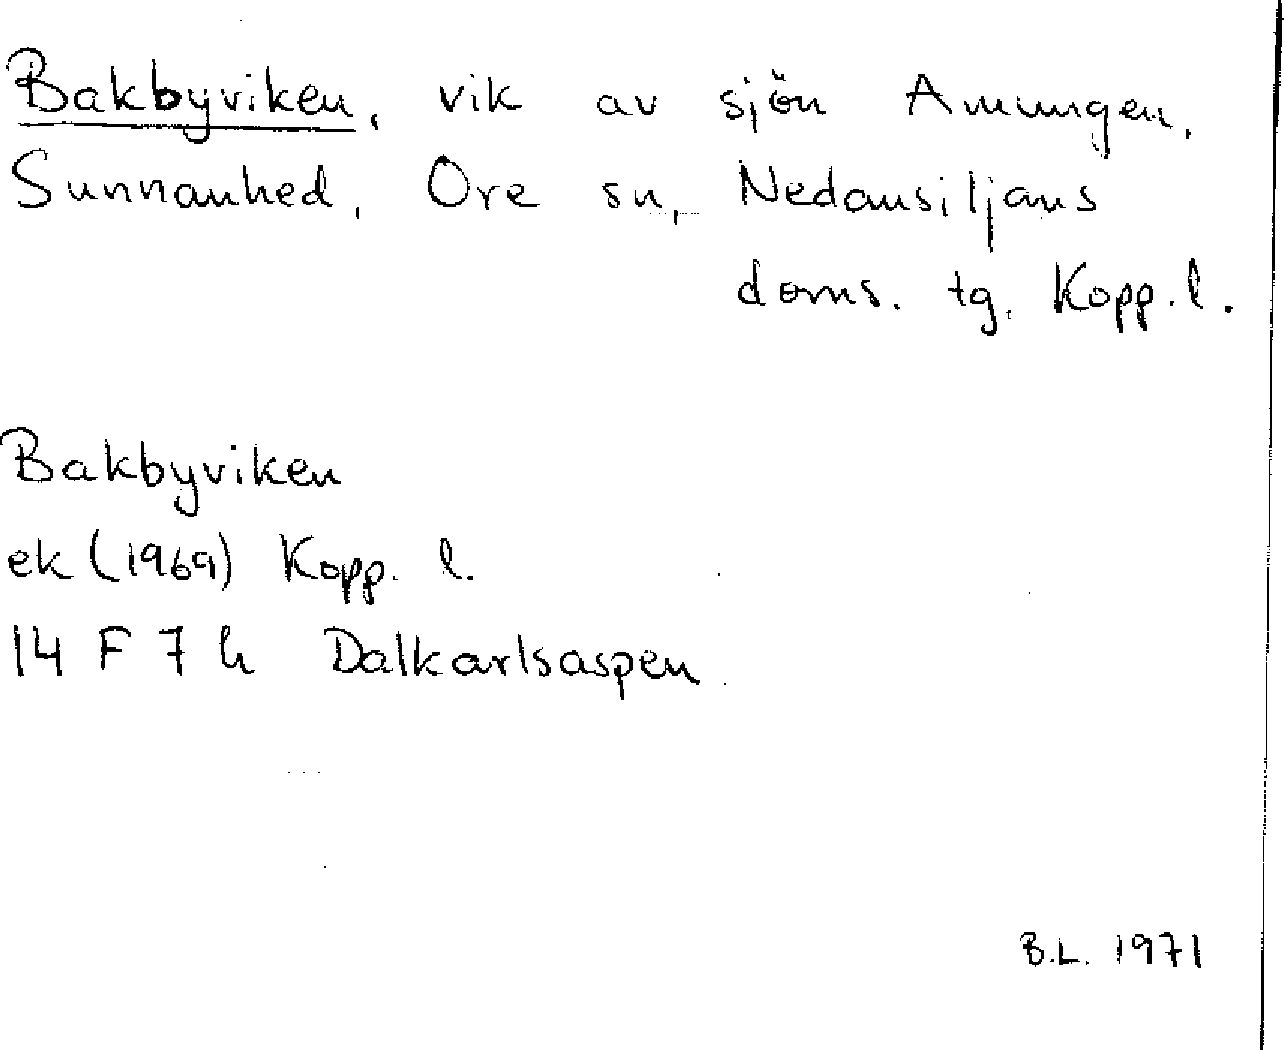 Bakbyviken, vik av sjön Amungen,
Sunnanhed, Ore sn, Nedansiljans
doms. tg. Kopp. l.
Bakbyviken
ek (1969) Kopp. l.
14 F 7 h Dalkarlsaspen
B.L. 1971